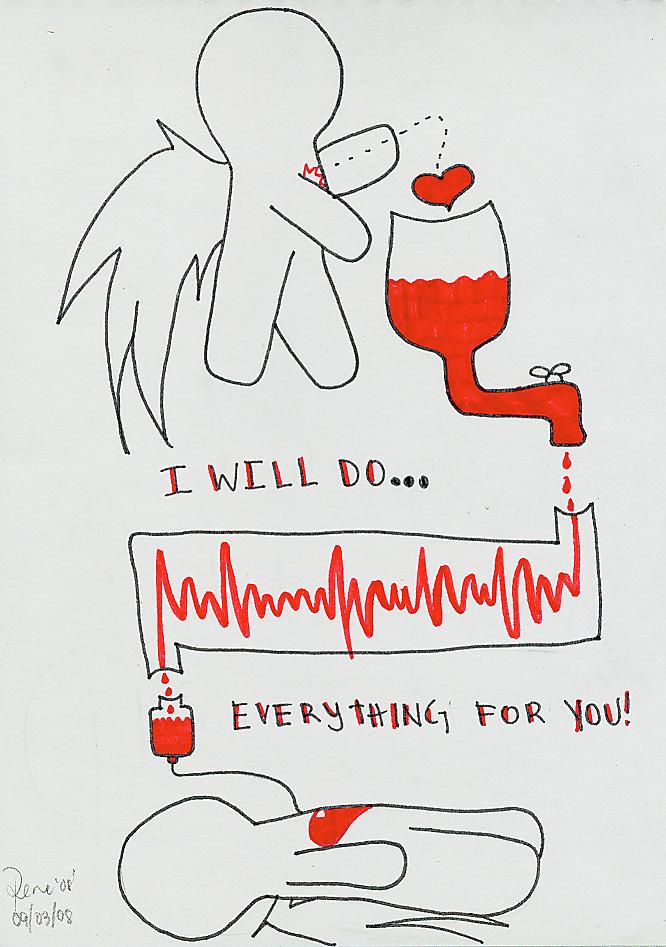 I WILL DO...
EVERYTHING FOR YOU!
Rene '08'
09/03/08